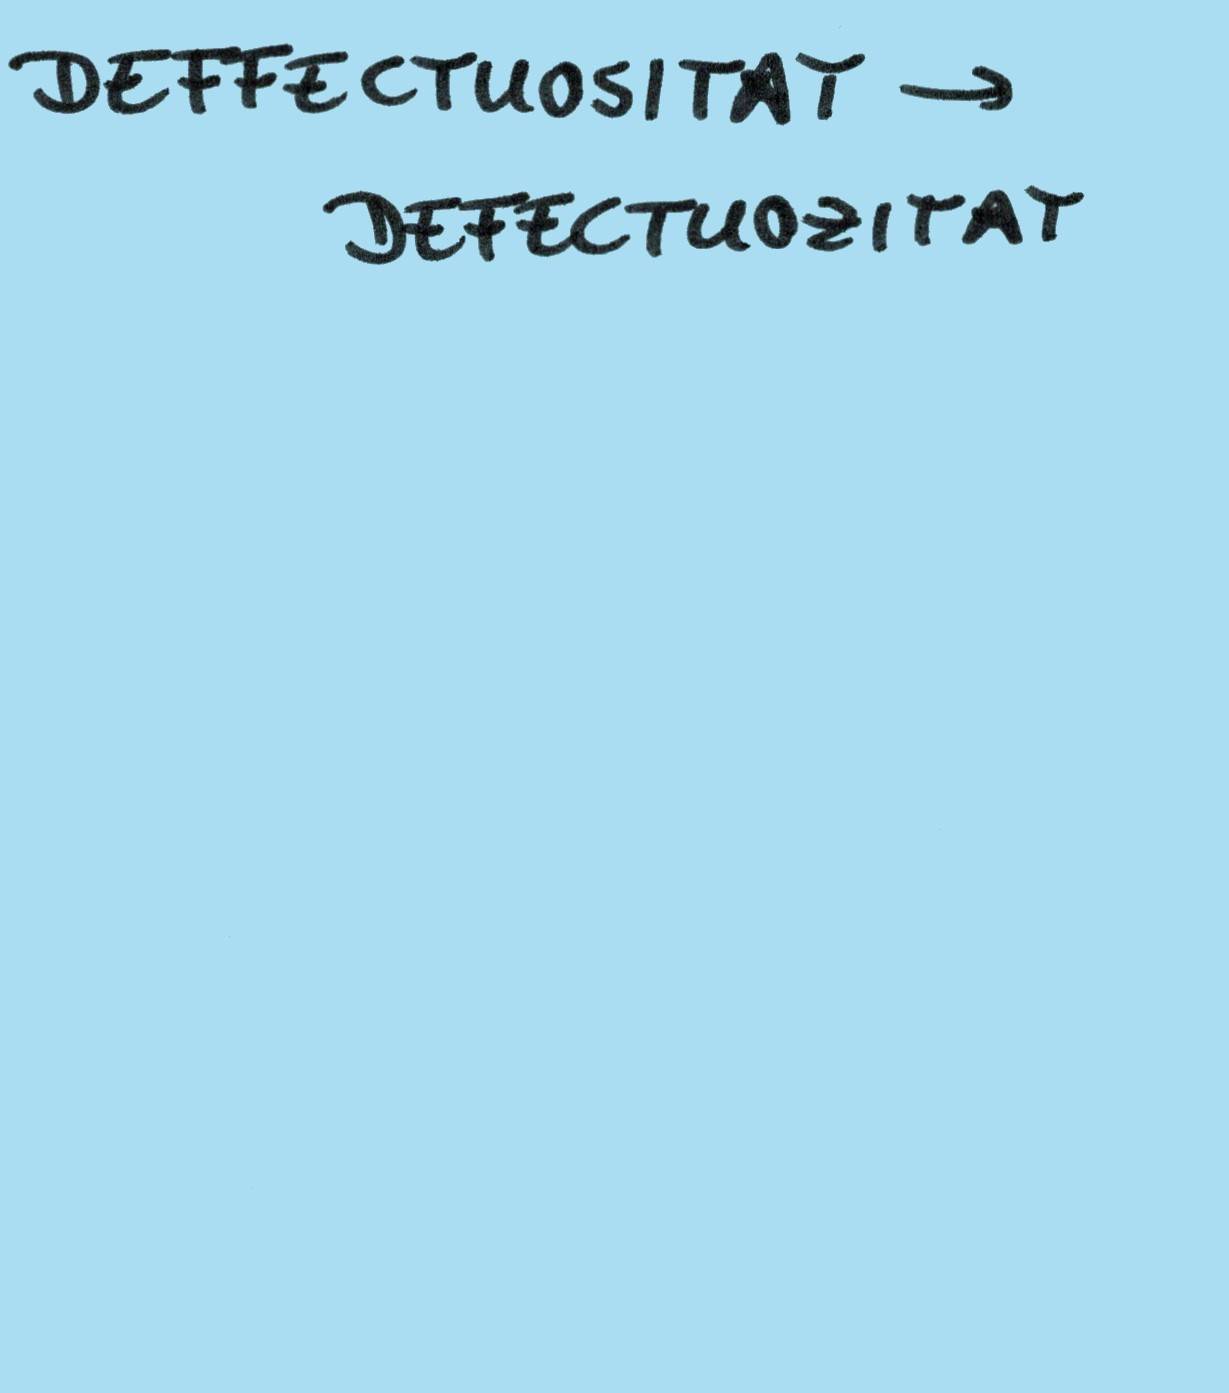 DEFFECTUOSITAT →
DEFECTUOZITAT